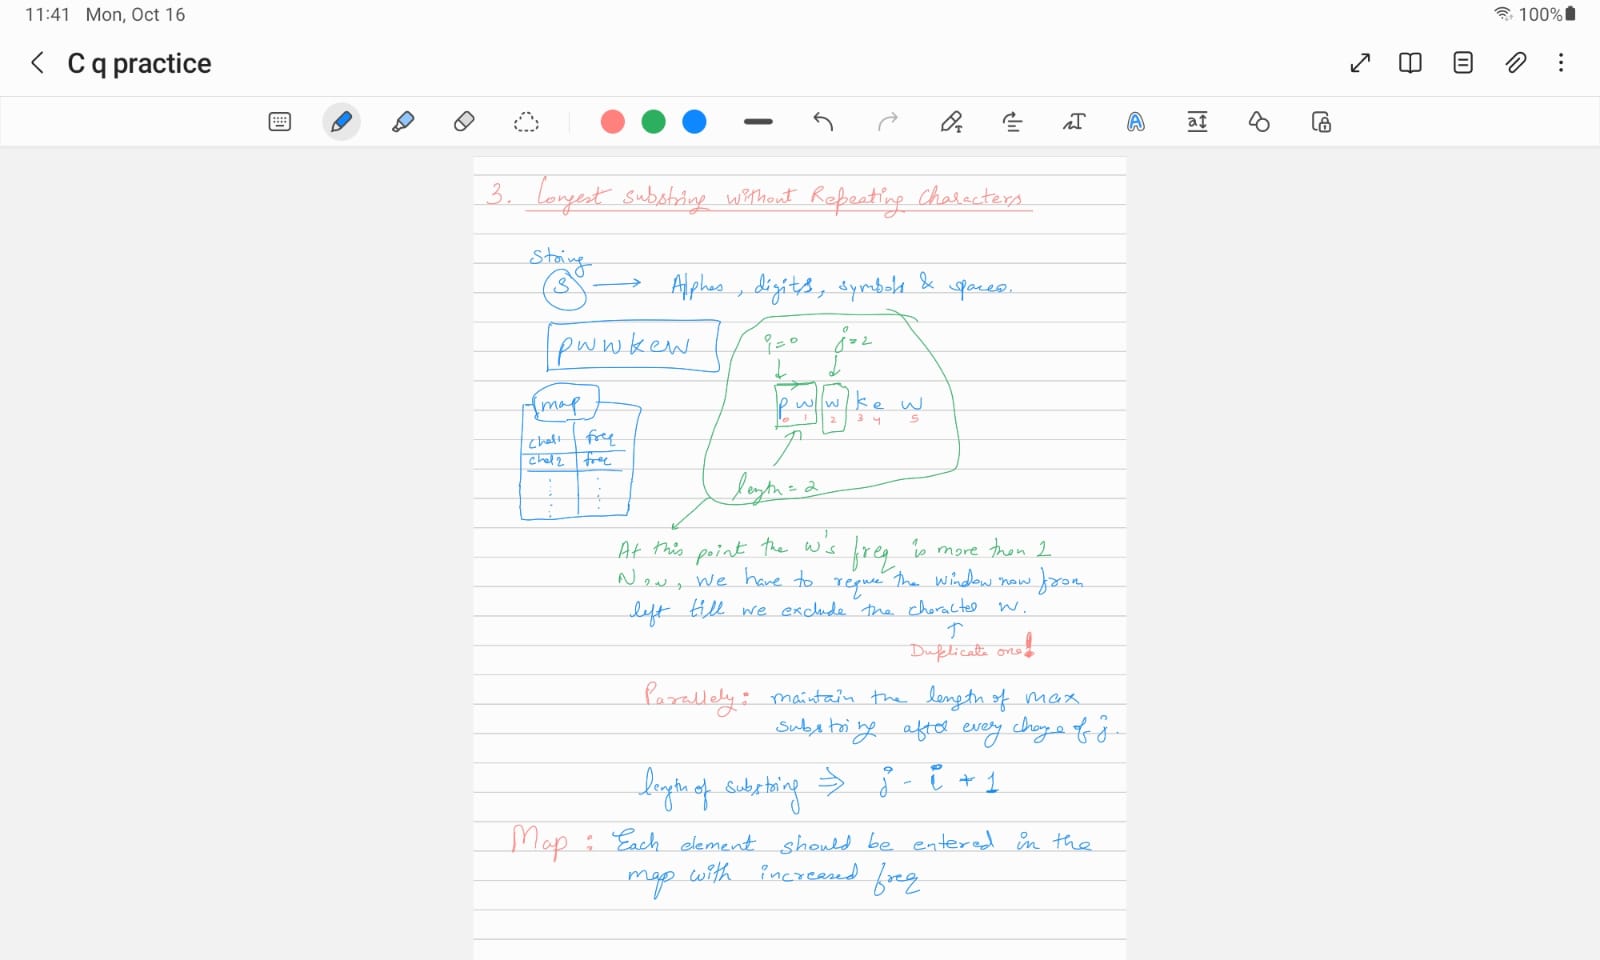 11:41 Mon, Oct 16
100%
C q practice
3. Longest substring without Repeating Characters
String
S → Alphas, digits, symbols & spaces.
pwwkew
i=0 j=2
p w w k e w
0 1 2 3 4 5
length = 2
map
char1 freq
char2 freq
At this point the w's freq is more than 1
Now, we have to the window now from
left till we exclude the character w.
Duplicate one!
Parallely: maintain the length of max
substring after every change of j.
length of substring ⇒ j - i + 1
Map: Each element should be entered in the
map with increased freq